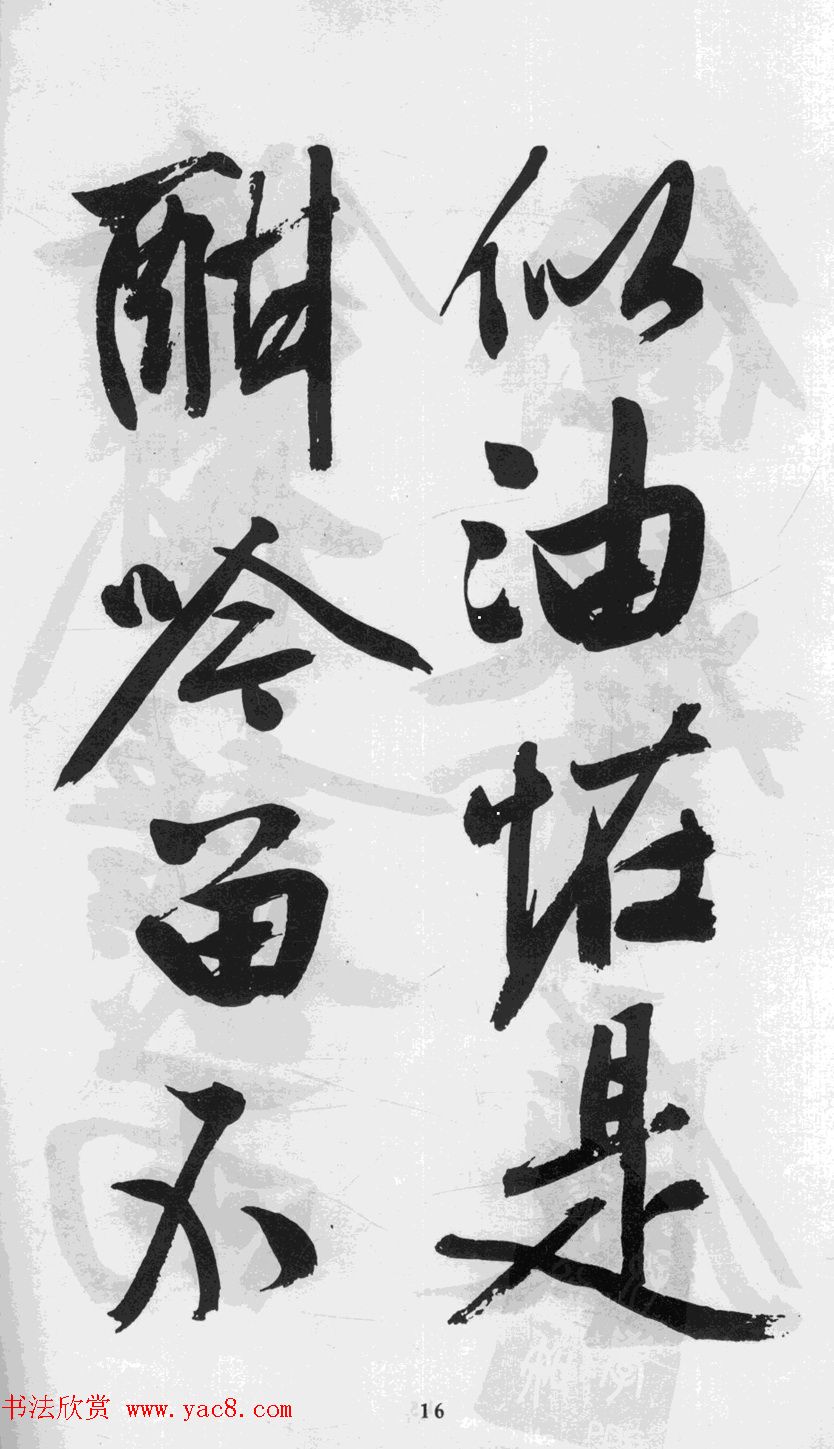 似油恠是
酣吟留不
16
书法欣赏 www.yac8.com